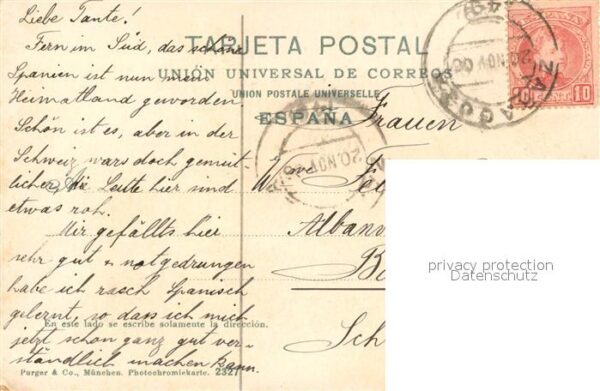 Liebe Tante!
Fern im Süd, das schöne
Spanien ist nun mein
Heimatland geworden.
Schön ist es, aber in der
Schweiz wars doch gemüt-
licher. Die Leute hier sind
etwas roh.
Mir gefällts hier
sehr gut & notgedrungen
habe ich rasch Spanisch
gelernt, so dass ich mich
jetzt schon ganz gut ver-
ständlich machen kann.
TARJETA POSTAL
UNIÓN UNIVERSAL DE CORREOS
UNION POSTALE UNIVERSELLE
ESPAÑA
Frauen
Albanv
Sch
ZARAGOZA
20 NOV 06
20 NOV
10 10
privacy protection
Datenschutz
En este lado se escribe solamente la dirección.
Purger & Co., München. Photochromiekarte. 2327